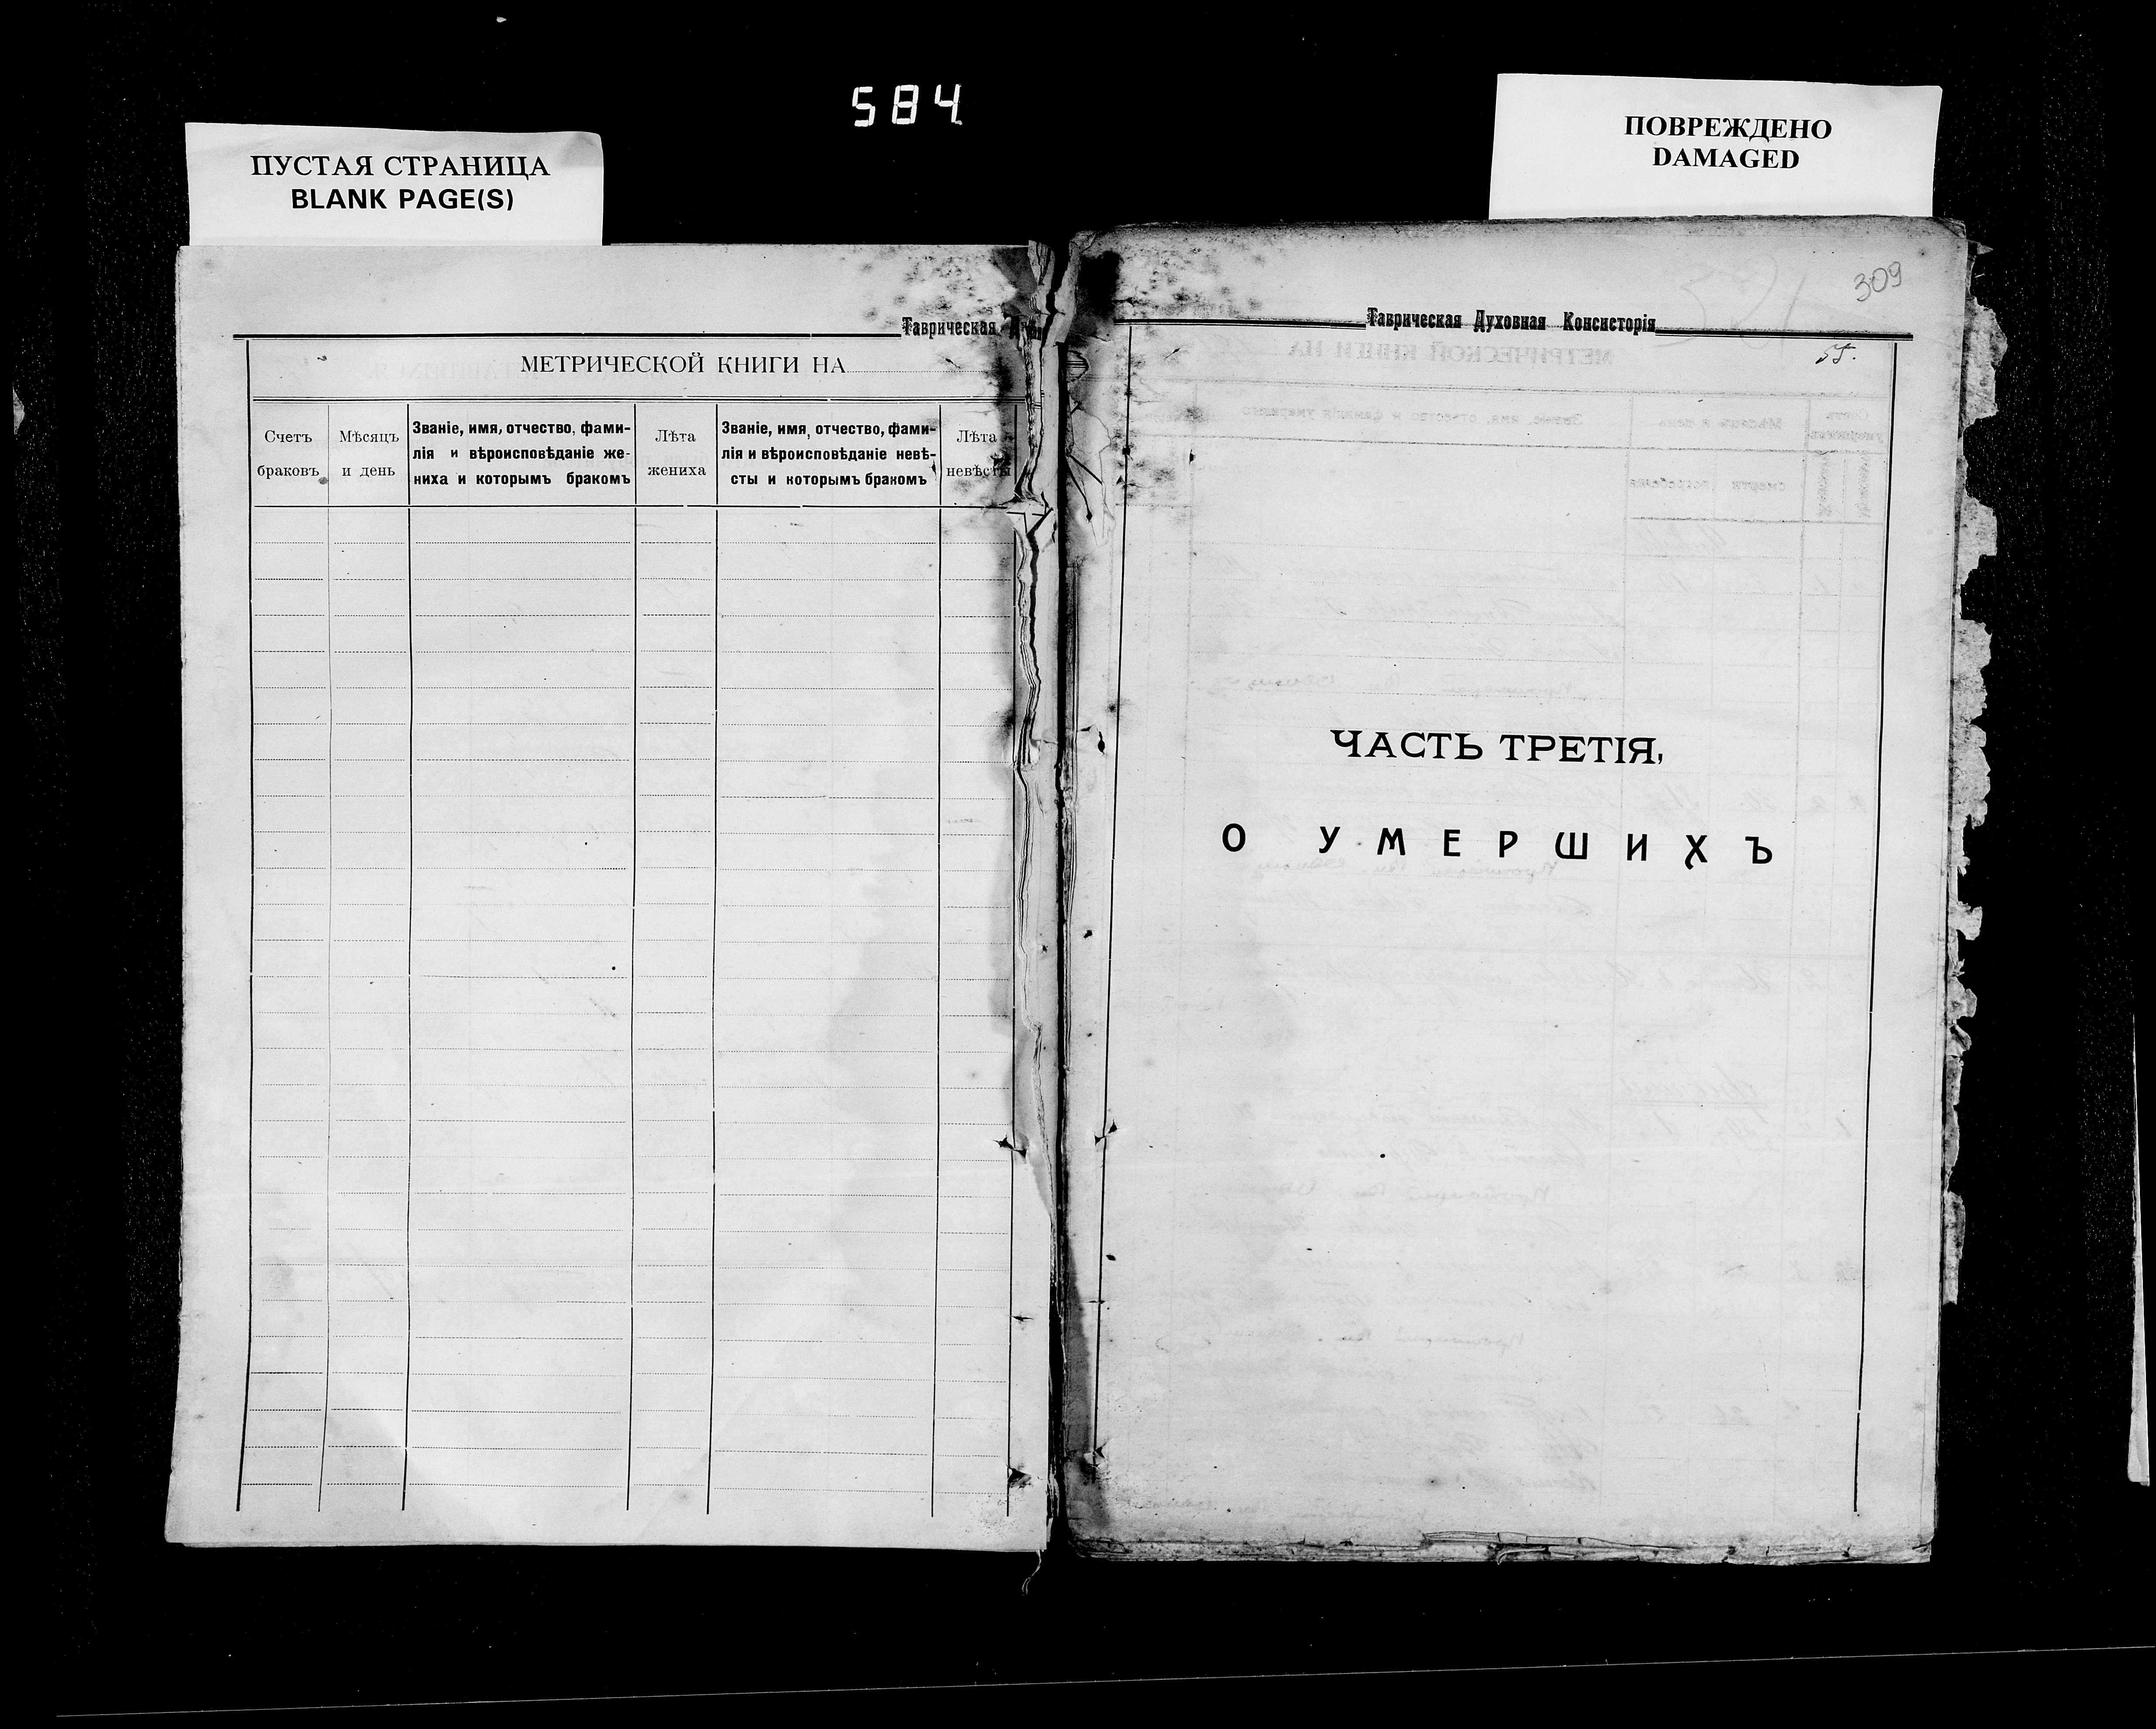 584
ПУСТАЯ СТРАНИЦА
BLANK PAGE(S)
Таврическая
МЕТРИЧЕСКОЙ КНИГИ НА
Счетъ браковъ
Мѣсяцъ и день
Званіе, имя, отчество, фами-
лія и вѣроисповѣданіе же-
ниха и которымъ бракомъ
Лѣта жениха
Званіе, имя, отчество, фами-
лія и вѣроисповѣданіе невѣ-
сты и которымъ бракомъ
Лѣта невѣсты
ПОВРЕЖДЕНО
DAMAGED
309
Таврическая Духовная Консисторія
ЧАСТЬ ТРЕТІЯ,
О УМЕРШИХЪ